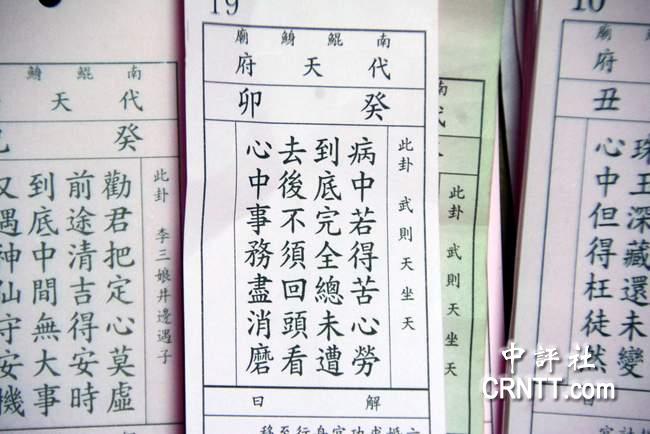 19
南鯤鯓廟
代天府
癸卯
此卦 武則天坐天
病中若得苦心勞
到底完全總未遭
去後不須回頭看
心中事務盡消磨
解曰
南鯤鯓
代天
癸
此卦 李三娘井邊遇子
勸君把定心莫虛
前途清吉得安時
到底中間無大事
又遇神仙守安機
解
南
此卦 武則天坐天
10
廟
府
丑
珠玉深藏還未變
心中但得枉徒然
中評社
CRNTT.com